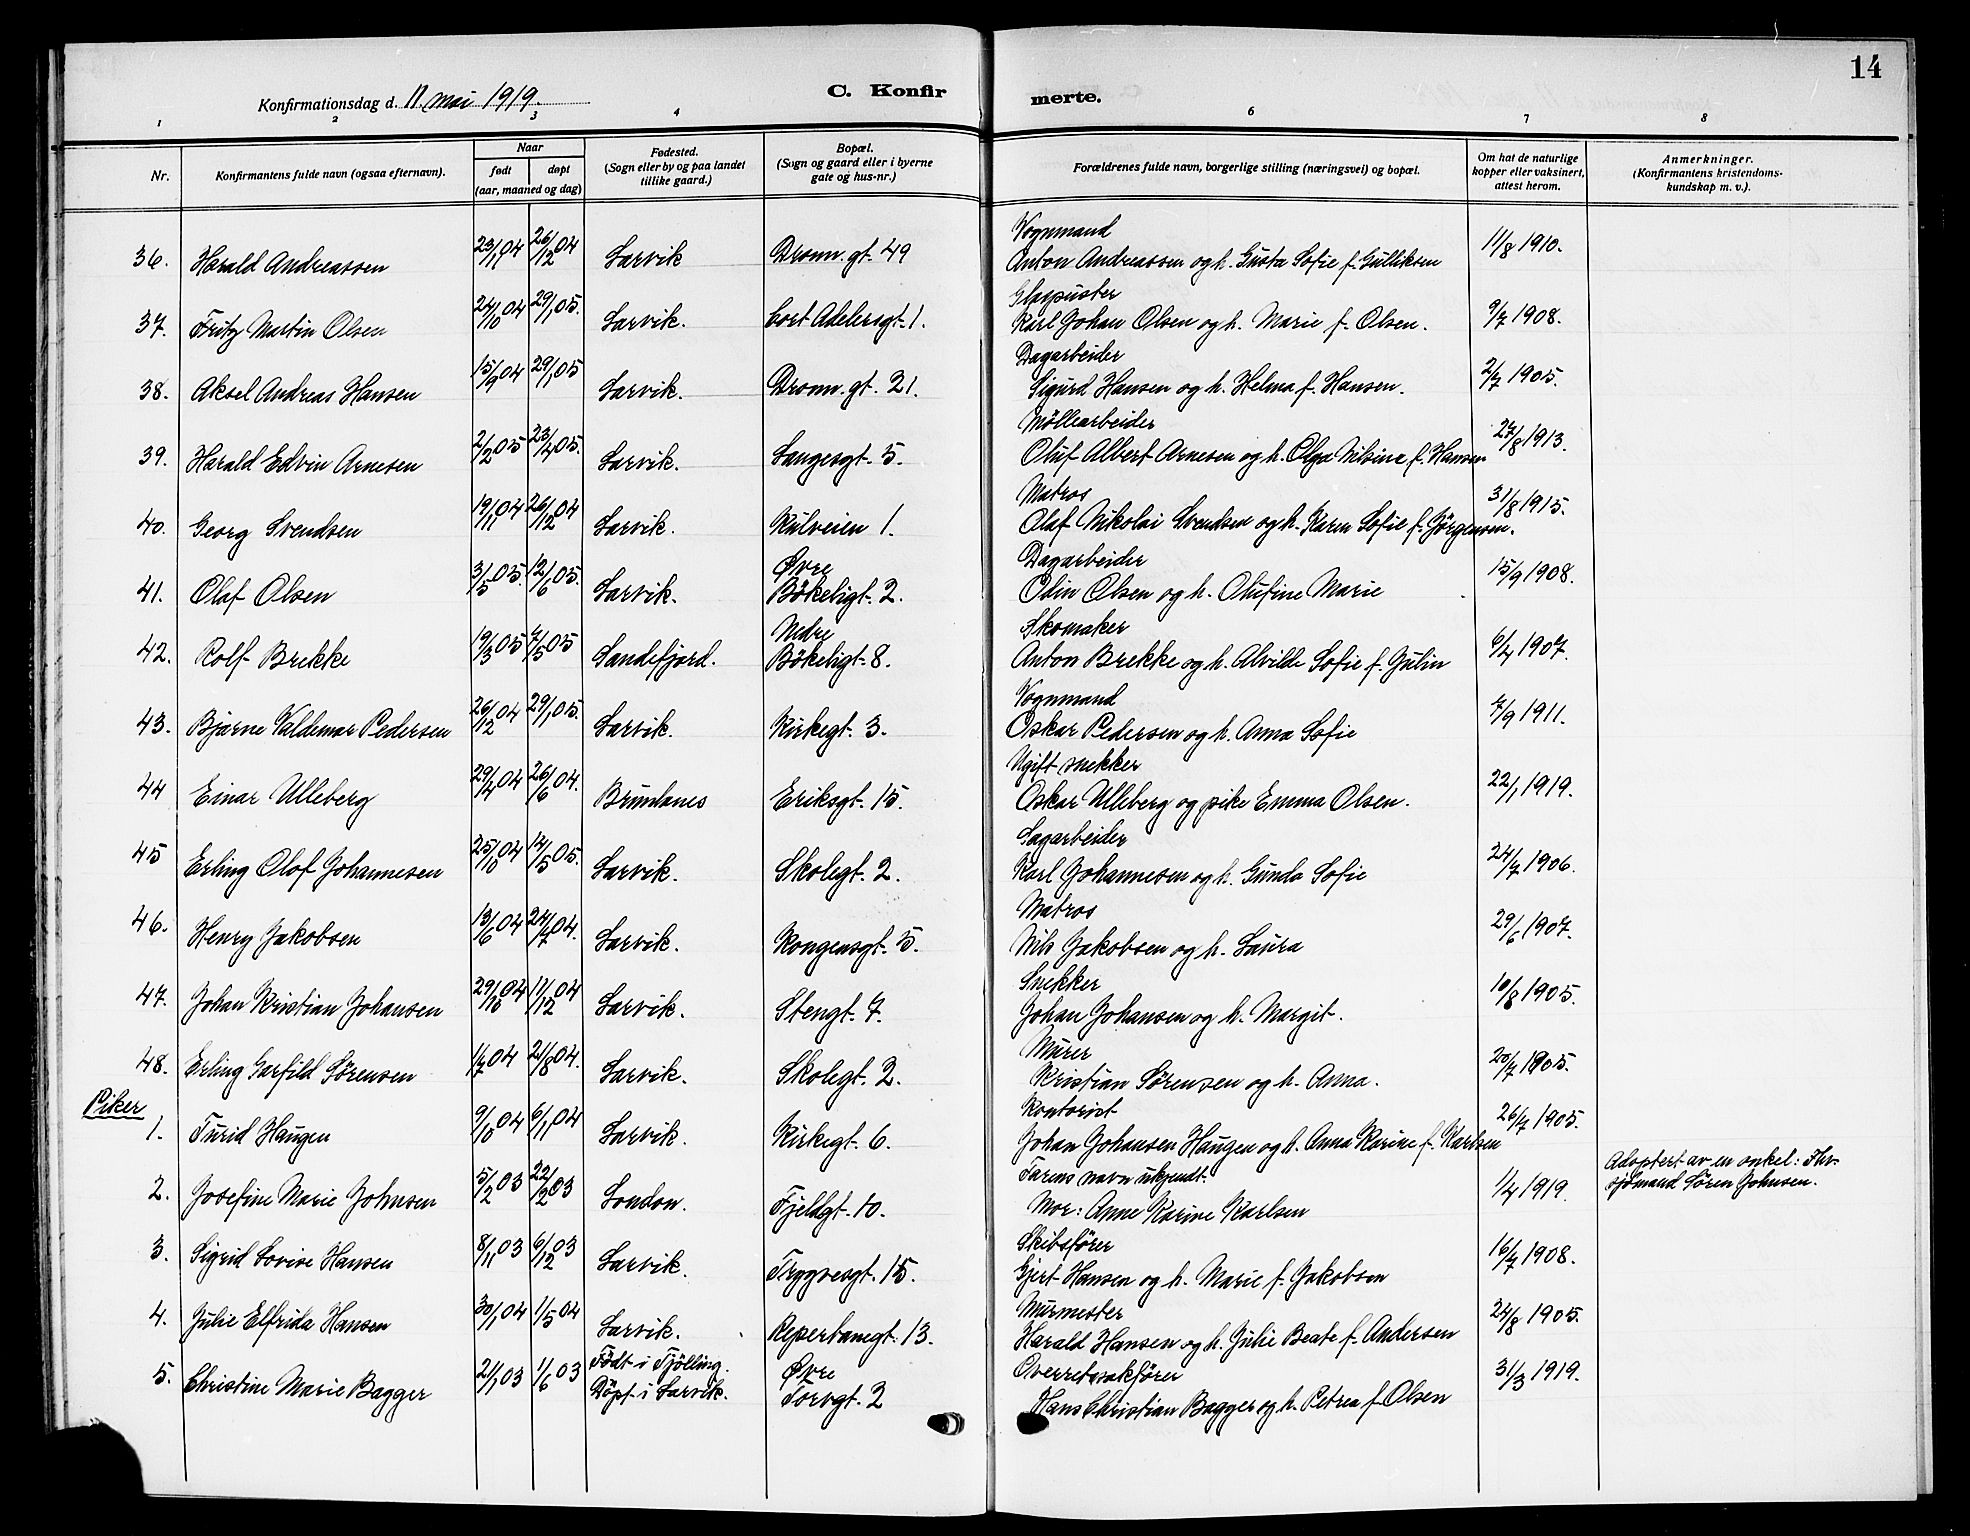 14
Konfirmationsdag d. 11 mai 1919.
C. Konfirmerte.
1 2 3 4 6 7 8
Nr.
Konfirmantens fulde navn (ogsaa efternavn).
Naar
født døpt
(aar, maaned og dag)
Fødested.
(Sogn eller by og paa landet
tillike gaard.)
Bopæl.
(Sogn og gaard eller i byerne
gate og hus-nr.)
Forældrenes fulde navn, borgerlige stilling (næringsvei) og bopæl.
Om hat de naturlige
kopper eller vaksinert,
attest herom.
Anmerkninger.
(Konfirmantens kristendoms-
kundskap m. v.).
Vognmand
36. Harald Andreassen 23/11 04 26/12 04 Larvik Dronn. gt. 49 Anton Andreassen og h. Gusta Sofie f. Gulliksen 11/8 1910.
Glaspuster
37. Fritz Martin Olsen 24/10 04 29/1 05. Larvik. Cort Adelersgt. 1. Karl Johan Olsen og h. Marie f. Olsen. 9/7 1908.
Dagarbeider
38. Aksel Andreas Hansen 15/9 04 29/1 05 Larvik. Dronn. gt. 21. Sigurd Hansen og h. Helma f. Hansen. 2/7 1905.
Möllearbeider
39. Harald Edvin Arnesen 2/2 05 23/4 05. Larvik. Langesgt. 5. Oluf Albert Arnesen og h. Olga Nilsine f. Hansen 27/8 1913.
Matros
40. Georg Svendsen 19/11 04 26/12 04 Larvik. Kulveien 1. Olaf Nikolai Svendsen og h. Karen Sofie f. Jörgensen. 31/8 1915.
Øvre Dagarbeider
41. Olaf Olsen 3/5 05. 12/6 05. Larvik. Bökeligt. 2. Odin Olsen og h. Olufine Marie 15/9 1908.
Nedre Skomaker
42. Rolf Brekke 19/3 05 7/5 05 Sandefjord. Bökeligt. 8. Anton Brekke og h. Alvilde Sofie f. Julin 6/4 1907.
Vognmand
43. Bjarne Valdemar Pedersen 26/12 04 29/1 05. Larvik. Kirkegt. 3. Oskar Pedersen og h. Anna Sofie 7/9 1911.
Ugift snekker
44 Einar Ulleberg 29/4 04 26/6 04. Brunlanes Eriksgt. 15. Oskar Ulleberg og pike Emma Olsen. 22/1 1919.
Sagarbeider
45 Erling Olof Johannesen 25/10 04 14/5 05. Larvik. Skolegt. 2. Karl Johannesen og h. Gunda Sofie 24/7 1906.
Matros
46. Henry Jakobsen 13/6 04 24/7 04. Larvik. Kongensgt. 5. Nils Jakobsen og h. Laura 29/6 1907.
Snekker
47. Johan Kristian Johansen 29/10 04 11/12 04 Larvik. Stengt. 7. Johan Johansen og h. Margit. 10/8 1905.
Murer
48. Erling Garfild Sørensen 1/7 04 21/8 04. Larvik. Skolegt. 2. Kristian Sørensen og h. Anna. 20/7 1905.
Piker Kontorist
1. Turid Haugen 9/10 04 6/11 04 Larvik. Kirkegt. 6. Johan Johansen Haugen og h. Anna Karine f. Karlsen 26/7 1905.
Farens navn ukjendt. Adoptert av en onkel: Fhv.
2. Josefine Marie Johnsen 5/2 03 22/2 03 London. Fjeldgt. 10. Mor: Anne Karine Karlsen 1/4 1919. sjømand Søren Johnsen.
Skibsfører
3. Sigrid Lovise Hansen 8/11 03 6/12 03 Larvik. Trygvesgt. 15. Gjert Hansen og h. Marie f. Jakobsen 16/7 1908.
Murmester
4. Julie Elfrida Hansen 30/1 04 1/5 04 Larvik. Reperbanegt. 13. Harald Hansen og h. Julie Beate f. Andersen 24/8 1905.
Født i Tjölling. Øvre Overretssakfører
5. Christine Marie Bagger 21/1 03 1/6 03 Döpt i Larvik. Torvgt. 2 Hans Christian Bagger og h. Petrea f. Olsen 31/3 1919.